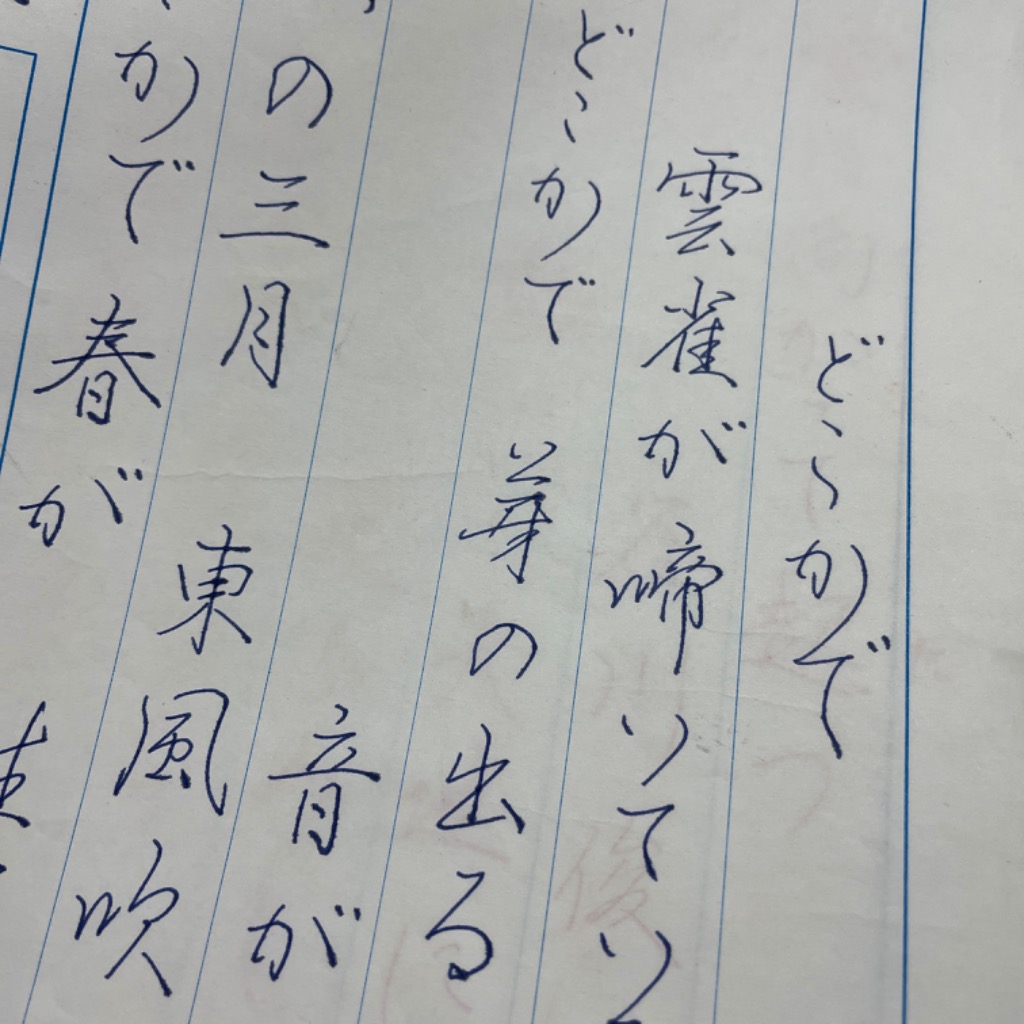 どこかで
雲雀が啼いてい
どこかで 芽の出る
音が
の三月 東風吹
かで 春が